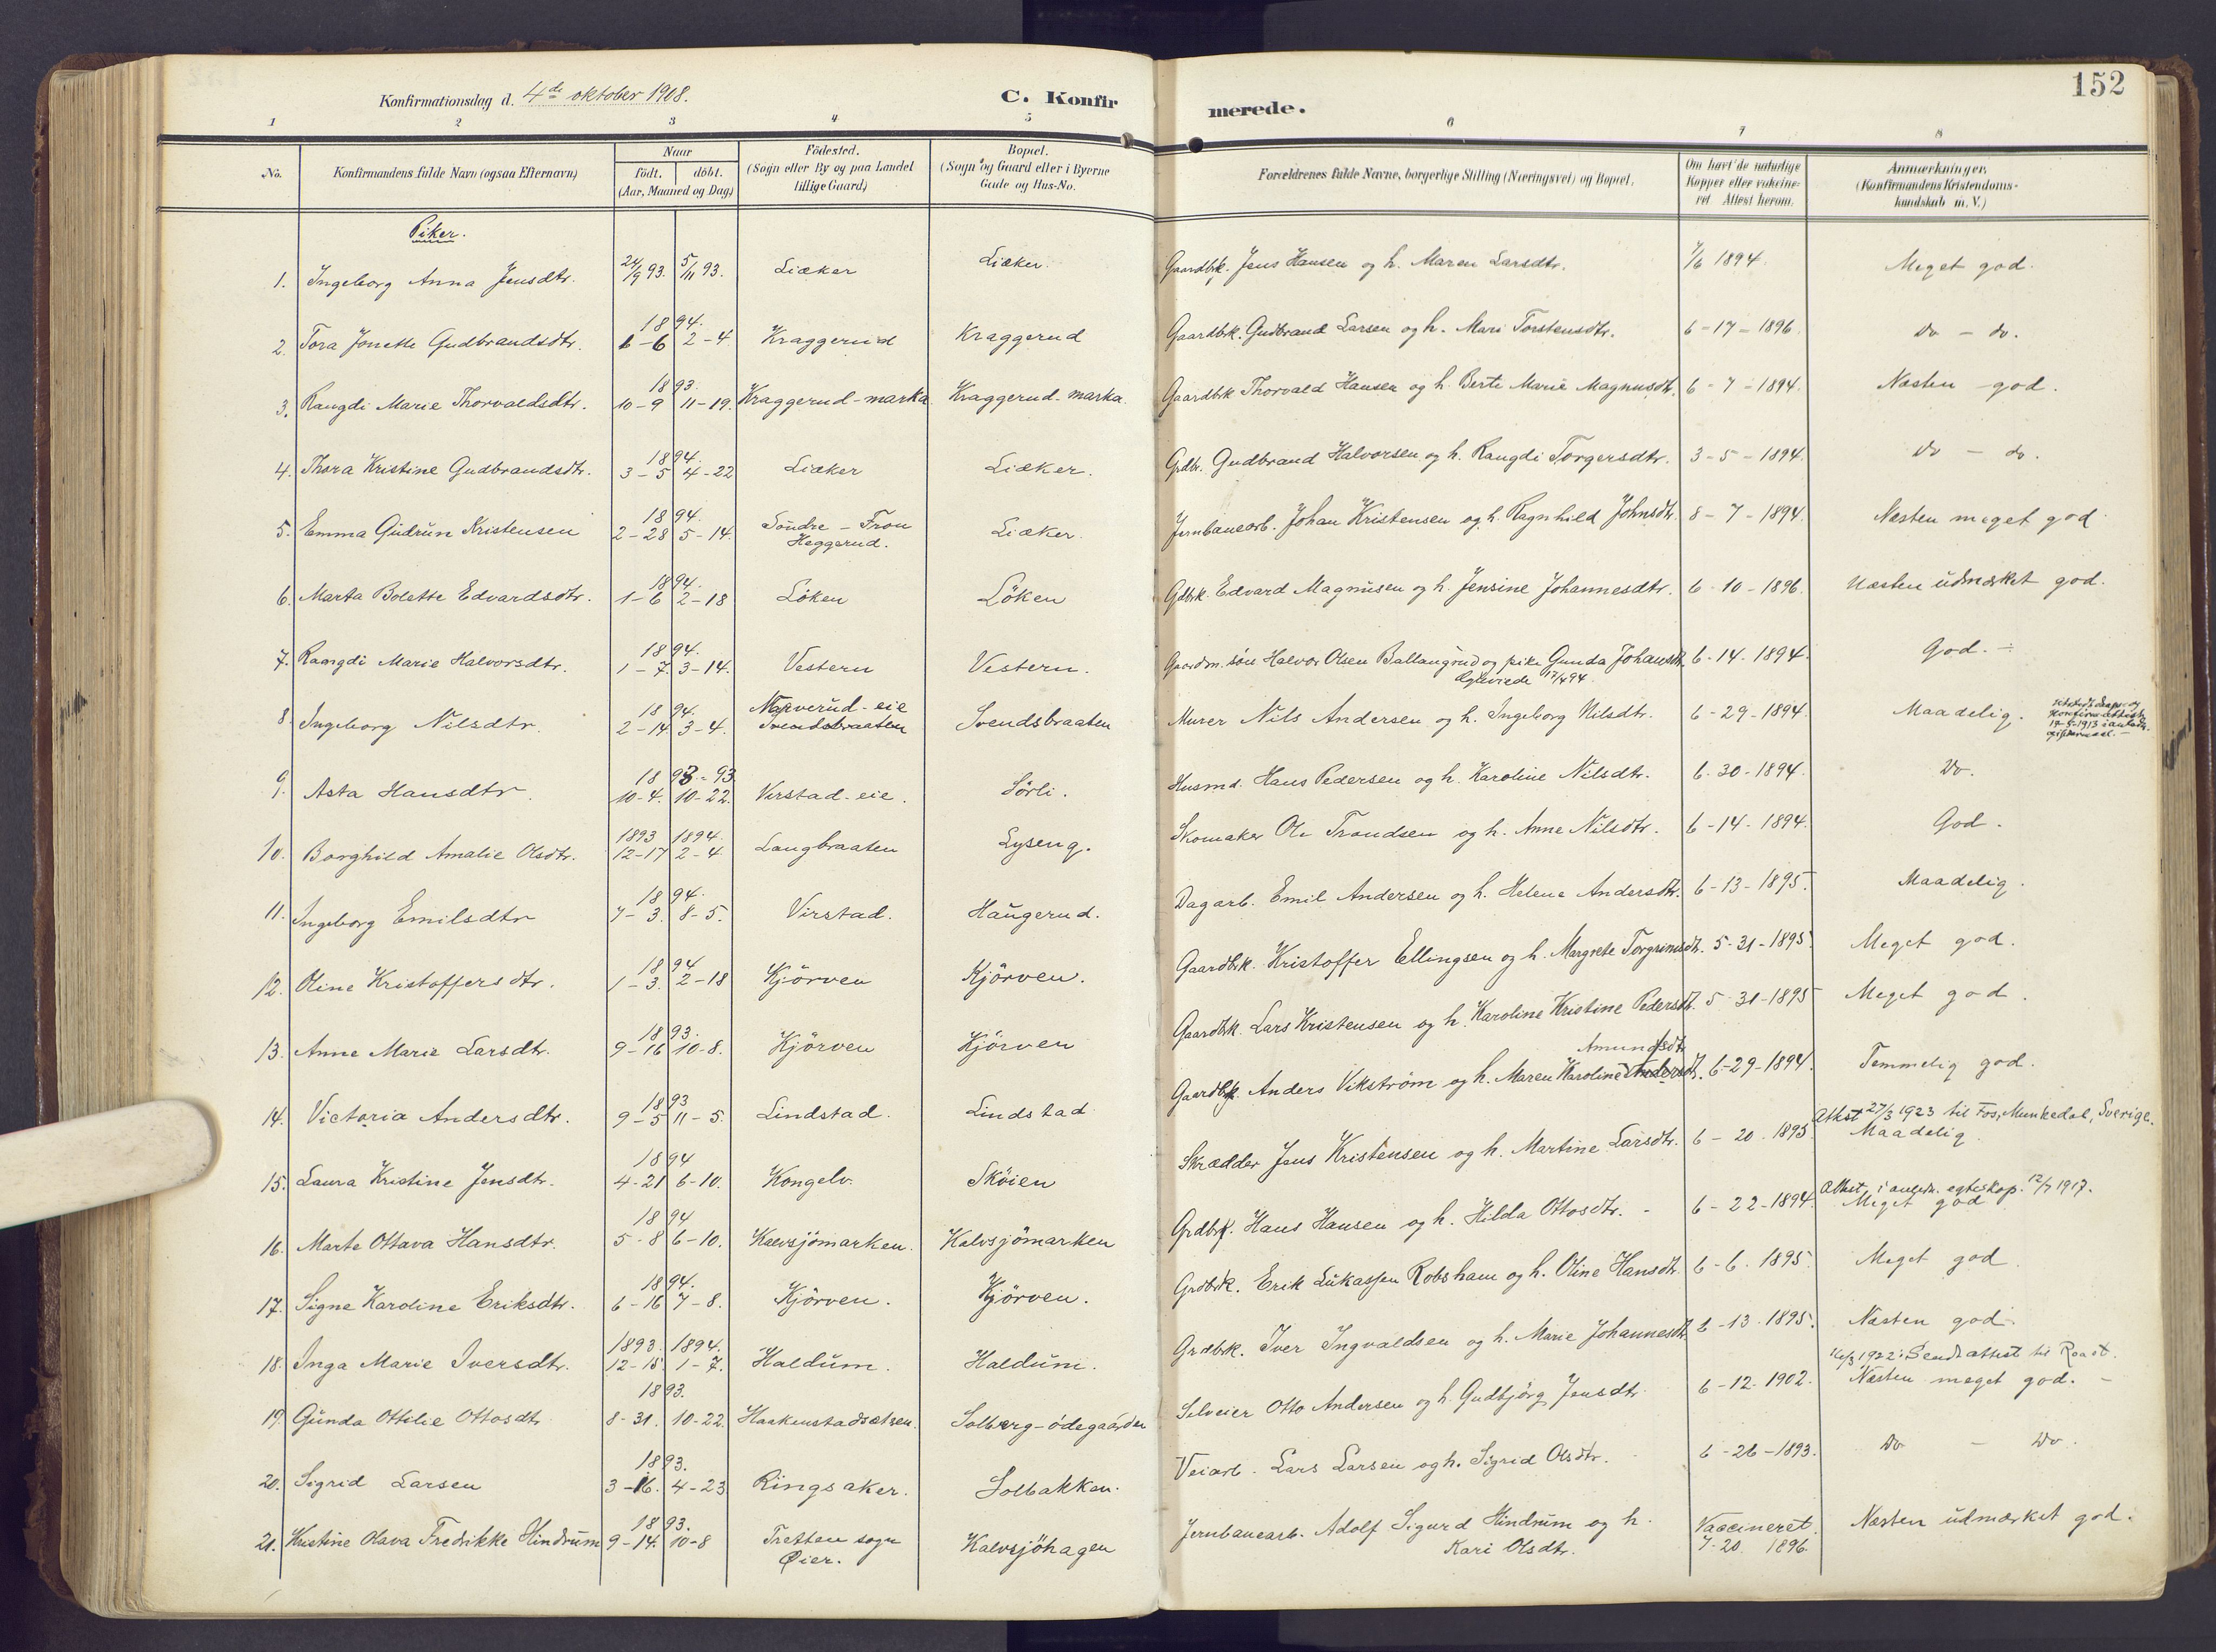 152
Konfirmationsdag d. 4de oktober 1908.
C. Konfir
merede.
1 2 3 4 5 6 7 8
No.
Konfirmandens fulde Navn (ogsaa Efternavn)
Naar
födt. döbt.
(Aar, Maaned og Dag)
Födested.
(Sogn eller By og paa Landet
tillige Gaard)
Bopæl.
(Sogn og Gaard eller i Byerne
Gade og Hus-No.
Forældrenes fulde Navne, borgerlige Stilling (Næringsvei) og Bopæl.
Om havt de naturlige
Kopper eller vakcine-
ret Attest herom.
Anmærkninger.
(Konfirmandens Kristendoms-
kundskab m. V.)
Piker.
1. Ingeborg Anna Jensdtr. 24/9 93. 5/11 93. Liæker Liæker. Gaardbrk. Jens Hansen og h. Maren Larsdtr. 7/6 1894. Meget god.
1894.
2. Tora Jonette Gudbrandsdtr. 1-6 2-4 Kraggerud Kraggerud Gaardbrk. Gudbrand Larsen og h. Mari Torstensdtr. 6-17-1896. do - do.
1893.
3. Rangdi Marie Thorvaldsdtr. 10-9 11-19. Kraggerud-marka Kraggerud-marka. Gaardbrk Thorvald Hansen og h. Berte Marie Magnusdtr. 6-7-1894. Næsten - god.
1894.
4. Thora Kristine Gudbrandsdtr. 3-5 4-22 Liæker Liæker. Grdbr. Gudbrand Halvorsen og h. Rangdi Torgersdtr. 3-5-1894. do - do.
1894.
5. Emma Gudrun Kristensen 2-28 5-14. Söndre-Fron
Heggerud. Liæker. Jernbanearb. Johan Kristensen og h. Ragnhild Johnsdtr. 8-7-1894. Næsten meget god
1894.
6. Marta Bolette Edvardsdtr. 1-6 2-18 Löken Löken Gdbrk. Edvard Magnusen og h. Jensine Johannesdtr. 6-10-1896. Næsten udmerket god.
1894.
7. Raangdi Marie Halvorsdtr. 1-7. 3-14. Vestern Vestern. Gaardm. sön Halvor Olsen Ballangrud og pike Gunda Johansdtr. 6-14-1894. God.
Egteviede 12/4 94
1894.
8. Ingeborg Nilsdtr. 2-14. 3-4. Narverud-eie
Svendsbraaten Svendsbraaten Murer Nils Andersen og h. Ingeborg Nilsdtr. 6-29-1894. Maadelig.
1893-93.
9. Asta Hansdtr. 10-4. 10-22. Virstad-eie. Sörli. Husmd. Hans Pedersen og h. Karoline Nilsdtr. 6-30-1894. Do.
1893 1894.
10. Borghild Amalie Olsdtr. 12-17 2-4 Langbraaten Lyseng. Skomaker Ole Trondsen og h. Anne Nilsdtr. 6-14-1894. God.
1894.
11. Ingeborg Emilsdtr 7-3. 8-5. Virstad. Haugerud. Dagarb. Emil Andersen og h. Helene Andersdtr. 6-13-1895. Maadelig.
1894
12. Oline Kristoffersdtr. 1-3. 2-18 Kjörven Kjörven. Gaardbrk. Kristoffer Ellingsen og h. Margrete Torgrimsdtr. 5-31-1895. Meget god.
1893.
13. Anne Marie Larsdtr. 9-16 10-8. Kjörven Kjörven Gaardbrk. Lars Kristensen og h. Karoline Kristine Pedersdtr. 5-31-1895 Meget god.
1893
Amundsdtr
14. Victoria Andersdtr. 9-5 11-5. Lindstad. Lindstad Gaardbrk. Anders Vikström og h. Maren Karoline Andersdtr. 6-29-1894. Temmelig god.
1894
Attest 27/3 1923 til Foss, Munkedal, Sverige.
15. Laura Kristine Jensdtr. 4-21 6-10. Kongelv. Sköien Skrædder Jens Kristensen og h. Martine Larsdtr. 6-20-1895 Maadelig.
1894
Attest i anledn. egteskap. 12/7 1917.
16. Marte Ottava Hansdtr. 5-8 6-10. Kalvsjömarken. Kalvsjömarken Grdbrk. Hans Hansen og h. Hilda Ottosdtr. - 6-22-1894. Meget god
1894.
17. Signe Karoline Eriksdtr. 6-16 7-8. Kjörven. Kjörven. Grdbrk. Erik Lukassen Robsham og h. Oline Hansdtr. 6-6-1895. Meget god
1893. 1894.
18. Inga Marie Iversdtr. 12-15 1-7. Haldum. Haldum. Grdbrk. Iver Ingvaldsen og h. Marie Johannesdtr. 6-13-1895. Næsten god.
1893.
1922: Sendt attest til
19. Gunda Ottilie Ottosdtr 8-31. 10-22. Haakenstadsætren. Solberg-ödegaarden Selveier Otto Andersen og h. Gudbjörg Jensdtr. 6-12-1902. Næsten meget god.
1893.
20. Sigrid Larsen 3-16. 4-23 Ringsaker. Solbakken. Veiarb. Lars Larsen og h. Sigrid Olsdtr. 6-26-1893. do - do.
1893.
21. Kristine Olava Fredrikke Hindrum 9-14. 10-8 Tretten sogn
Øier. Kalvsjöhagen Jernbanearb. Adolf Sigurd Hindrum og h.
Kari Olsdtr. Vaccineret.
7-20 1896. Næsten udmærket god.